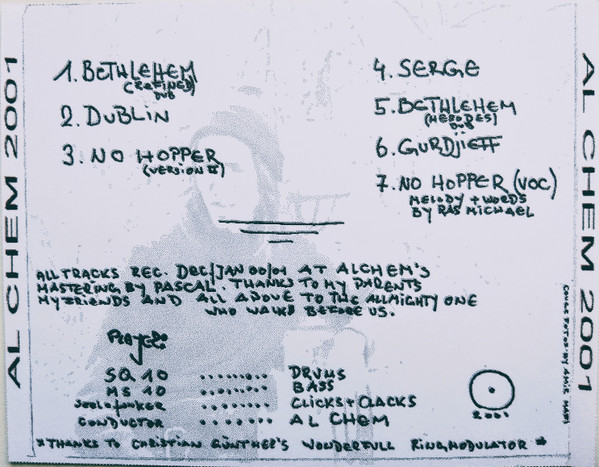 AL CHEM 2001
1. BETHLEHEM
(REFINED)
DUB
2. DUBLIN
3. NO HOPPER
(VERSION II)
4. SERGE
5. BETHLEHEM
(HERODES)
DUB
6. GURDJIEFF
7. NO HOPPER (VOC)
MELODY + WORDS
BY RAS MICHAEL
ALL TRACKS REC. DEC/JAN 00/01 AT ALCHEM'S
MASTERING BY PASCAL. THANKS TO MY PARENTS
MY FRIENDS AND ALL ABOVE TO THE ALLMIGHTY ONE
WHO WALKS BEFORE US.
PLAYER:
SQ 10 ........ DRUMS
MS 10 ........ BASS
........ CLICKS + CLACKS
CONDUCTOR ........ AL CHEM
2001
*THANKS TO CHRISTIAN GÜNTHER'S WONDERFULL RINGMODULATOR *
COVER FOTO: BY
AL CHEM 2001